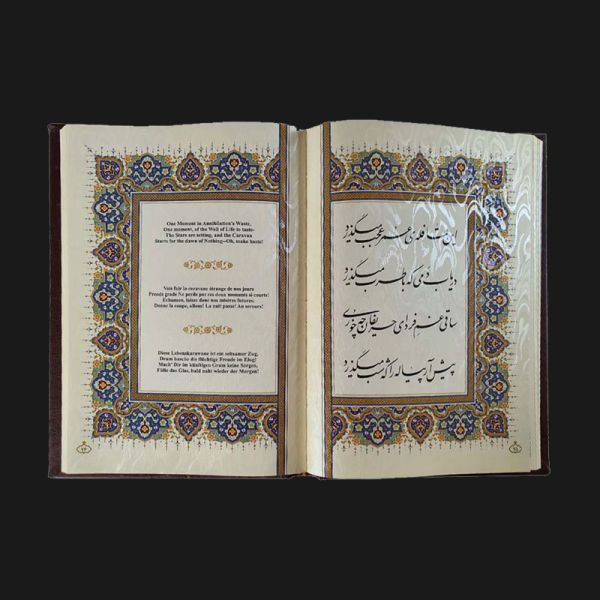 One Moment in Annihilation's Waste,
One moment, of the Well of Life to taste-
The Stars are setting, and the Caravan
Starts for the dawn of Nothing--Oh, make haste!
Vois fuir la caravane étrange de nos jours
Prends garde Ne perds pas ces doux moments si courts!
Echanson, laisse donc nos misères futures;
Donne la coupe, allons! La nuit passe! Au secours!
Diese Lebenskarawane ist ein seltsamer Zug,
Drum hasche die flüchtige Freude im Flug!
Mach' Dir im künftigen Gram keine Sorgen,
Fülle das Glas, bald naht wieder der Morgen!
این قافله عمر عجب میگذرد
دریاب دمی که با طرب میگذرد
ساقی غم فردای حریفان چه خوری
پیش آر پیاله را که شب میگذرد